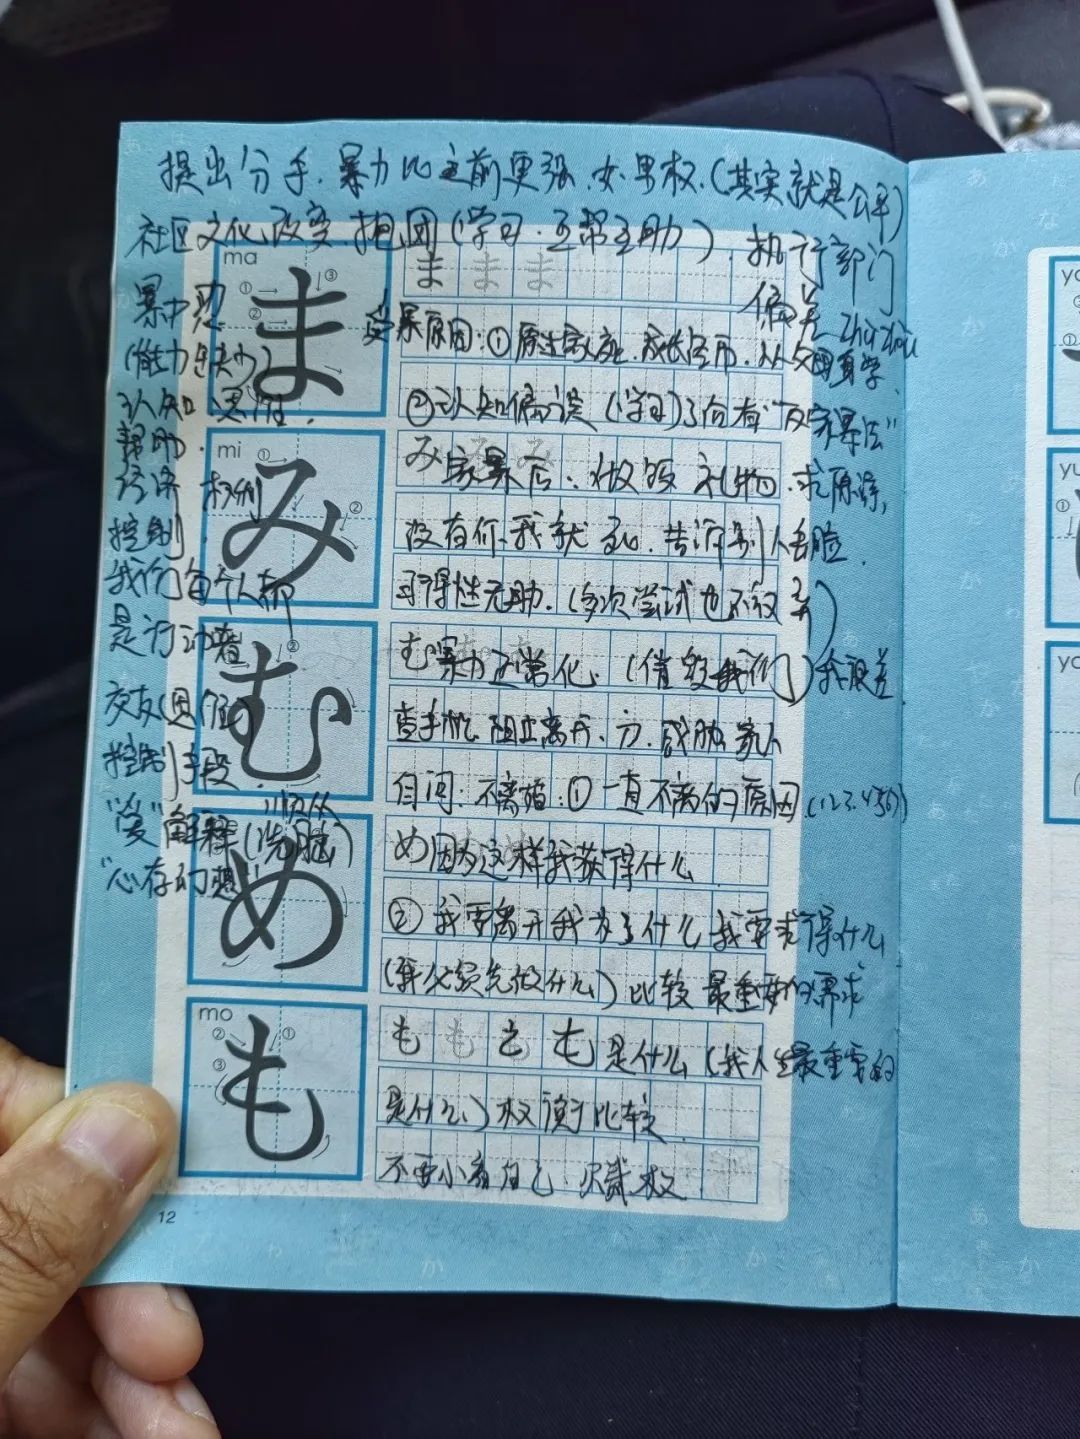 提出分手.暴力比之前更强.女.男权.(其实就是公平)
社区文化改变.抱团(学习.互帮互助).执行部门
偏差
ma
①
②
③
ま
ま ま ま
暴中忍
(能力缺少)
认知.思维.
帮助.
经济 权利
控制.
我们每个人都
是行动者
交友(思维)
控制手段.
"爱"解释(洗脑)
顺从
"心存幻想"
受暴原因:①原生家庭.成长
②认知偏误(学习)了向有"反家暴法"
mi
①
②
み
み み み
家暴后.做饭 礼物.求原谅,
没有你我就死.告诉别人丢脸.
习得性无助.(多次尝试也不
②
む
む
暴力正常化.(信 我们)我很差
查手机 阻止离开. 威胁家人
自问.不离婚:①一直不离的原因.(12345)
め
め
因为这样我获得什么
②我要离开我为了什么 我要求得什么
(我必须先做什么)比较 最重要的需求
mo
①
②
③
も
も も も も
是什么(我人生最重要的
是什么)权衡比较.
不要小看自己.
12
yo
①
yu
①
yo